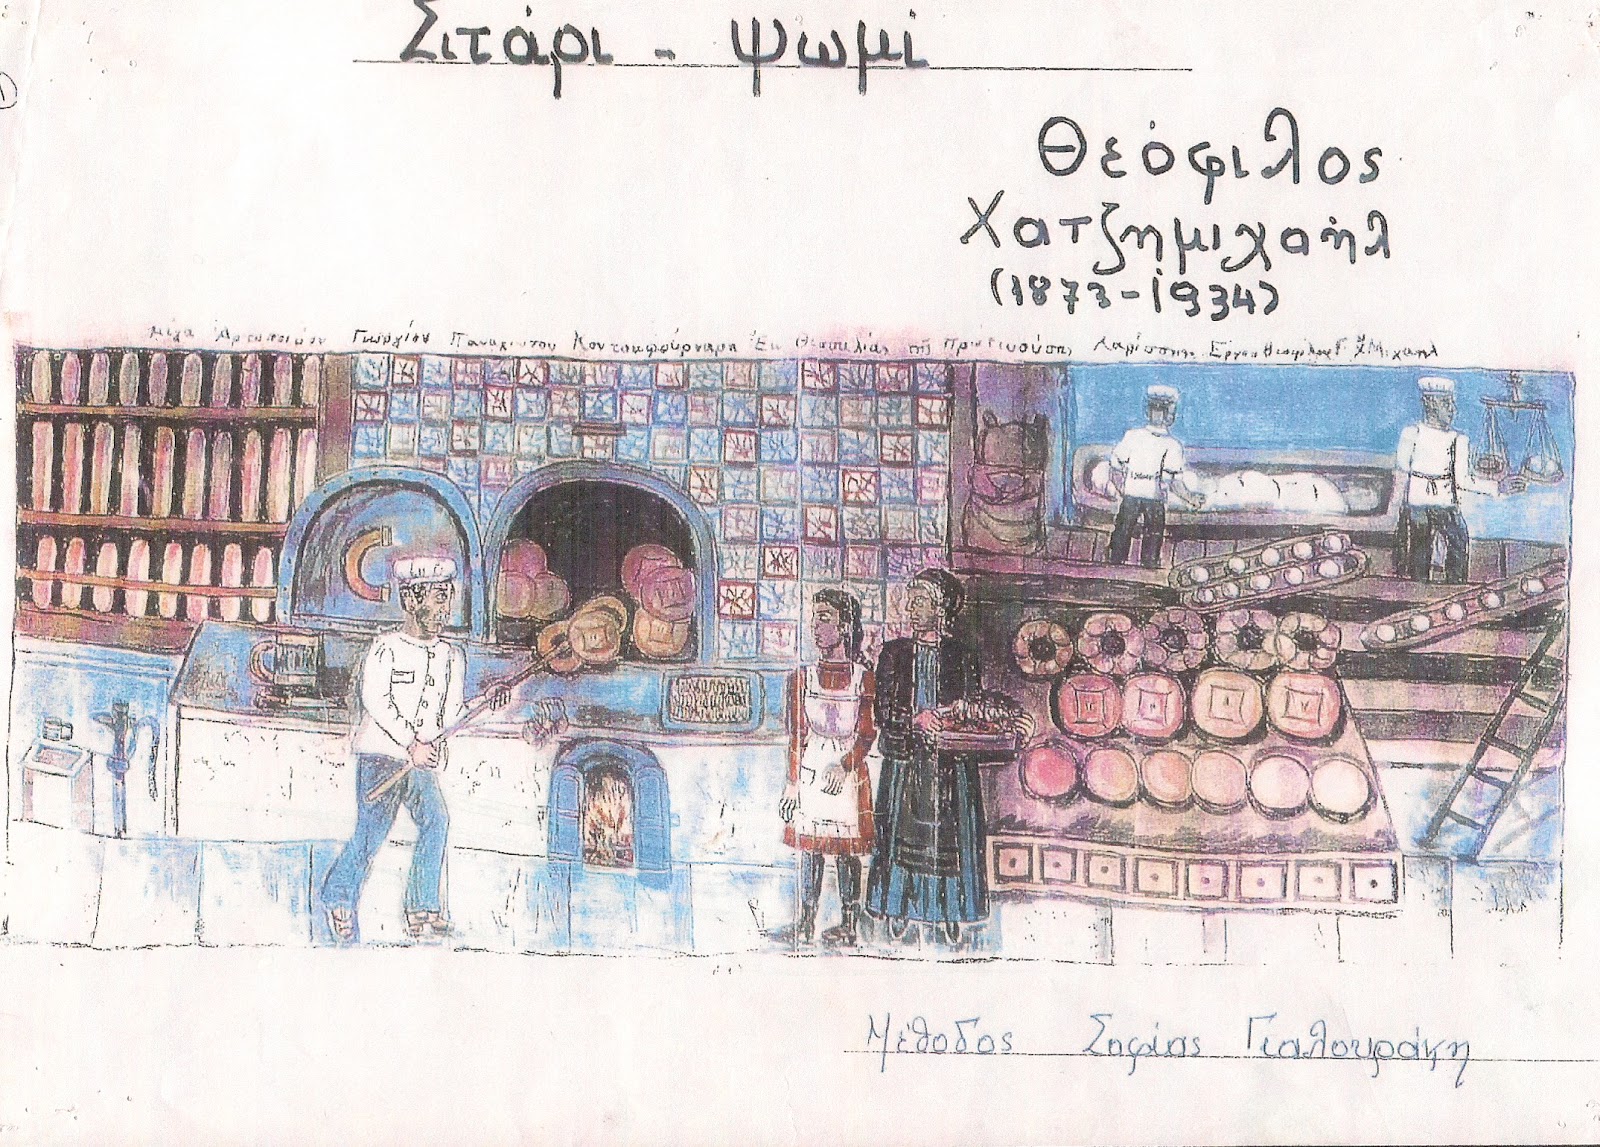 Σιτάρι - ψωμί
1
Θεόφιλος
Χατζημιχαήλ
(1873-1934)
Μέγα Γεωργίου Παναγιώτου Κοντοφούρναρη Ἐν Θεσσαλίας τῇ Πρωτευούσης Λαρίσσης Ἔργον Θεοφίλου Γ Χ Μιχαήλ
Μέθοδος Σοφίας Γιαλουράκη